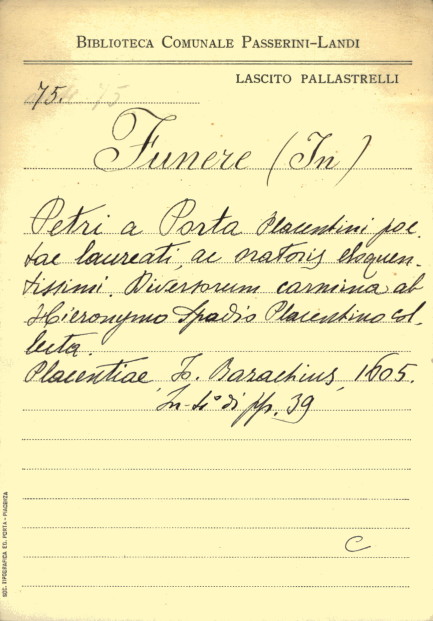 BIBLIOTECA COMUNALE PASSERINI-LANDI
LASCITO PALLASTRELLI
75.
Funere (In)
Petri a Porta Placentini poe-
tae laureati, ac oratoris eloquen-
tissimi. Diversorum carmina ab
Hieronymo Spadio Placentino col-
lecta.
Placentiae, Jo. Barachius, 1605.
In-4° di pp. 39
C
SOC. TIPOGRAFICA ED. PORTA - PIACENZA